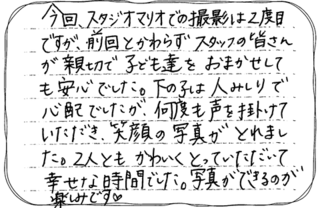 今回、スタジオマリオでの撮影は2度目
ですが、前回とかわらずスタッフの皆さん
が親切で子ども達をおまかせして
も安心でした。下の子は人みしりで
心配でしたが、何度も声を掛けて
いただき、笑顔の写真がとれまし
た。2人ともかわいくとっていただいて
幸せな時間でした。写真ができるのが
楽しみです♡